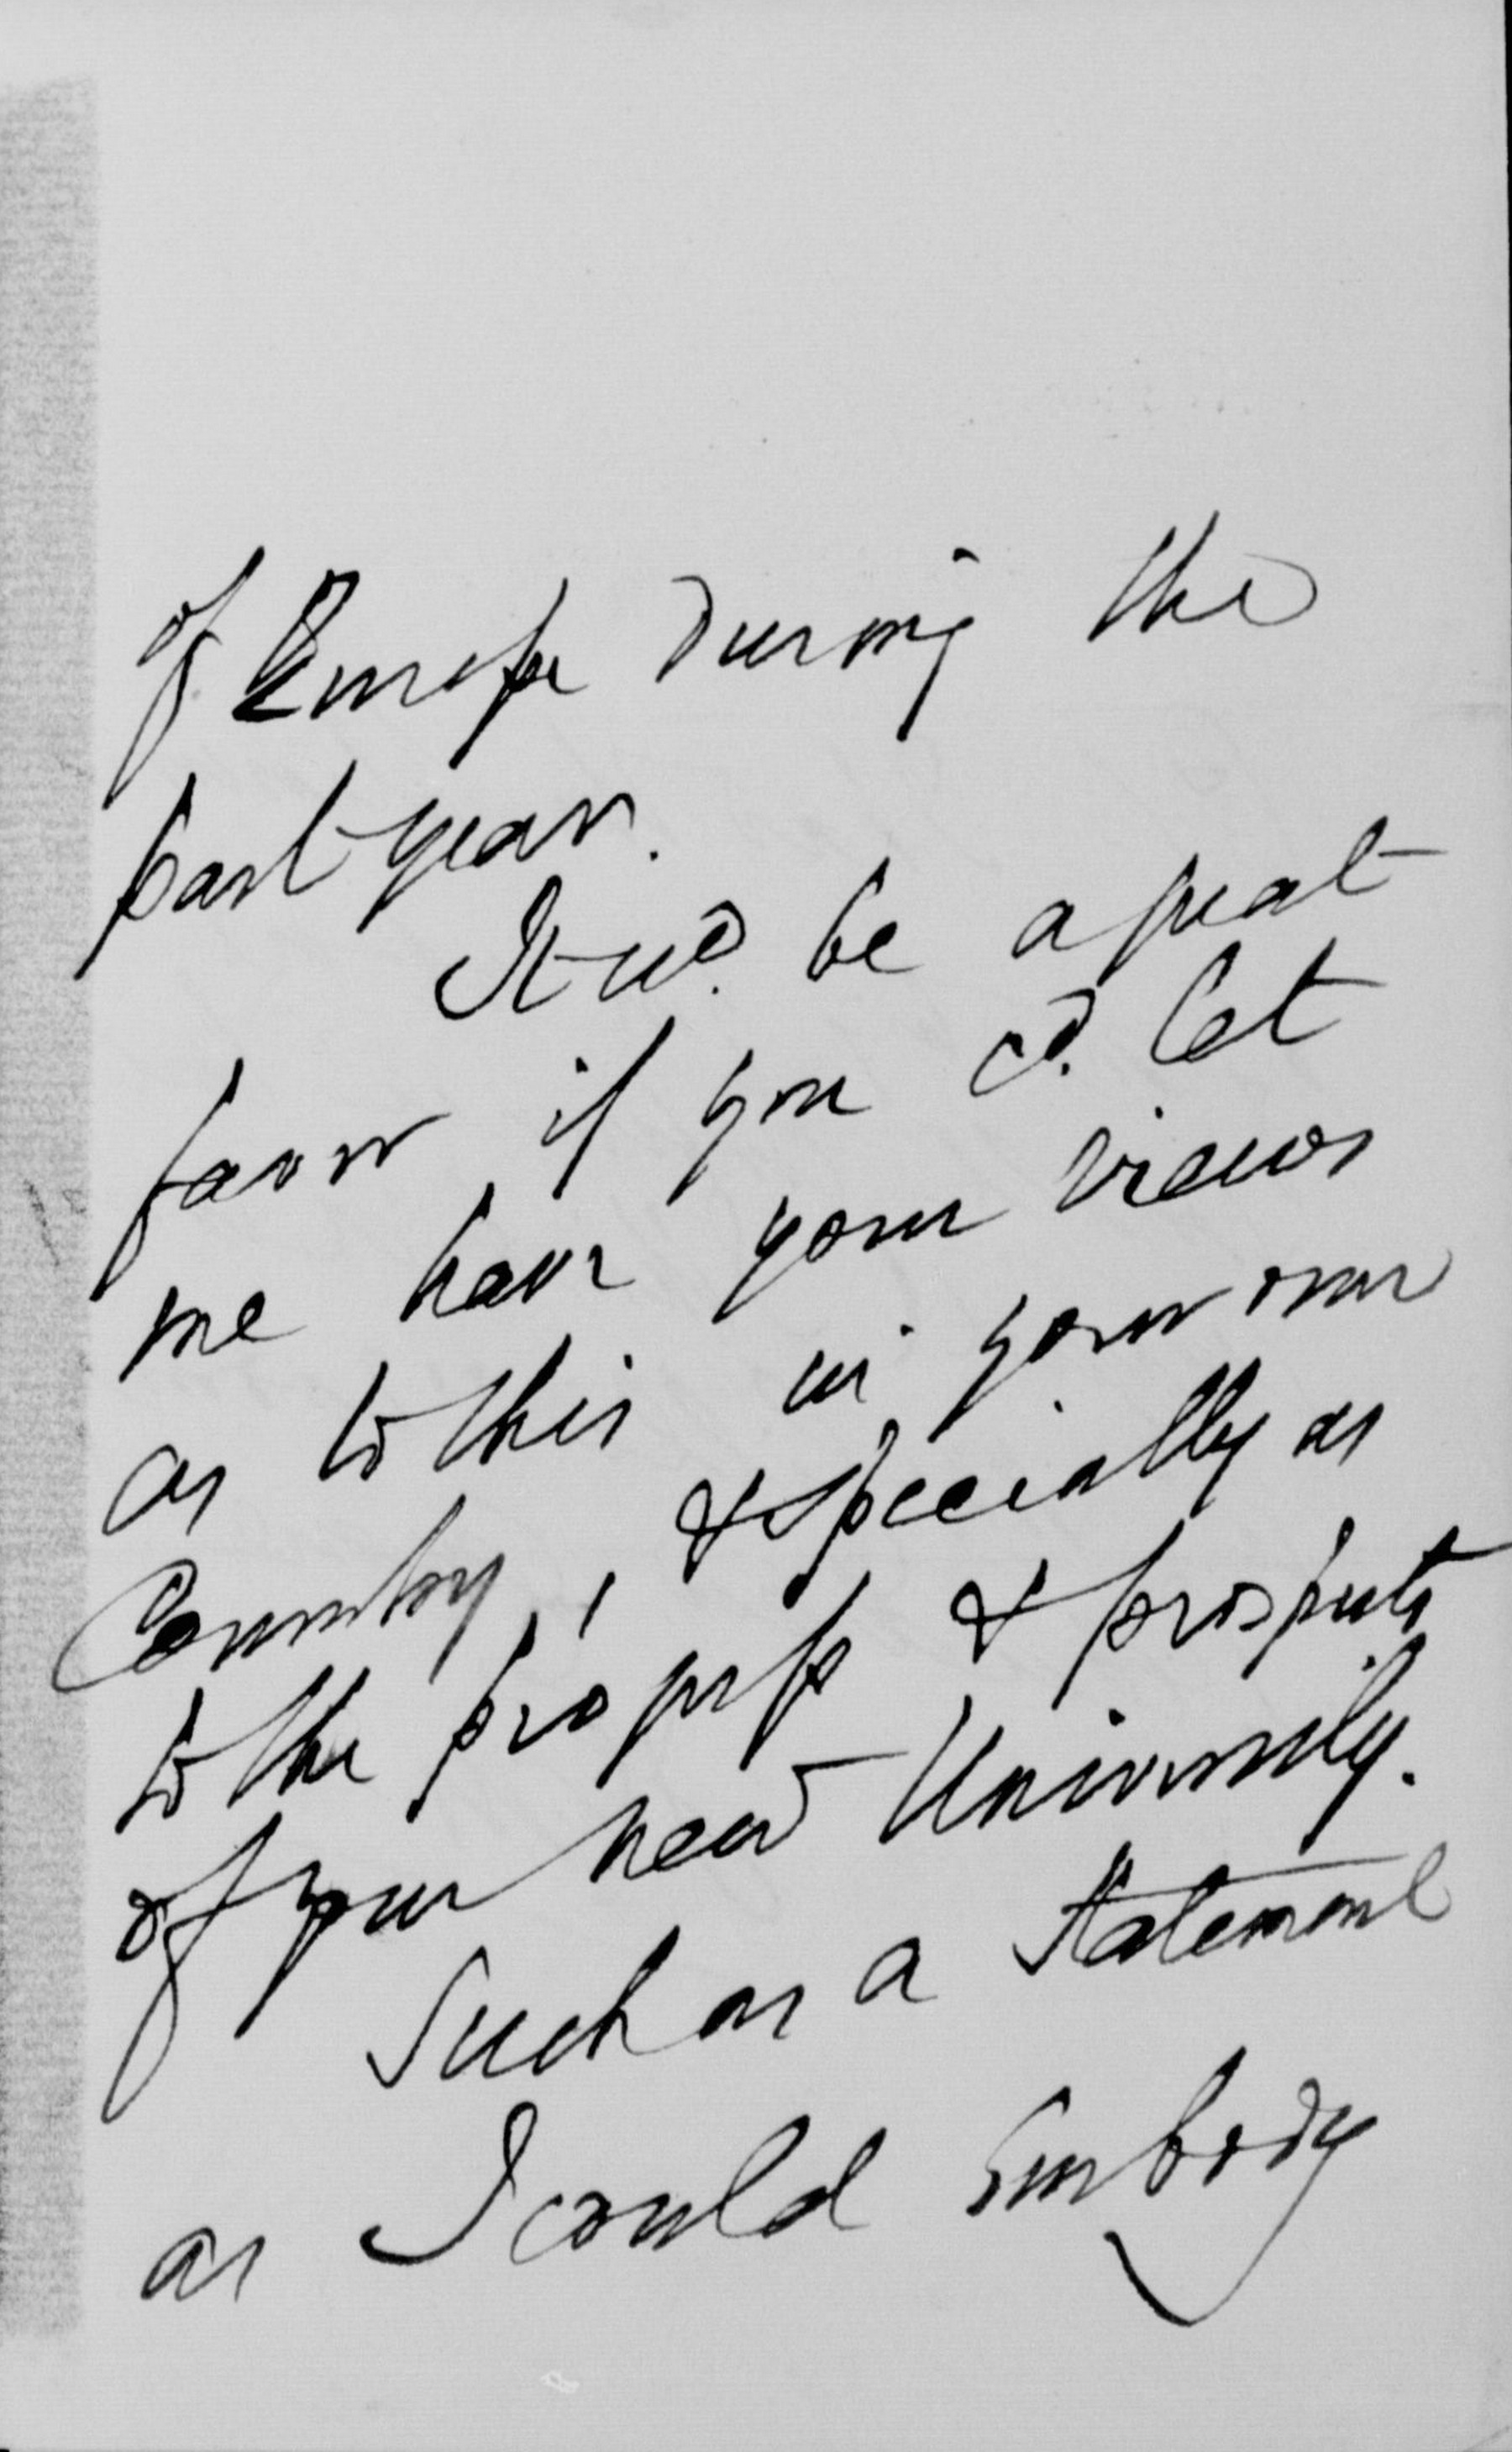 of Europe during the
past year.
It wd. be a great
favor if you cd. let
me have your views
as to this in your own
Country, & specially as
to the progress & prospects
of your new University.
Such as a statement
as I could embody